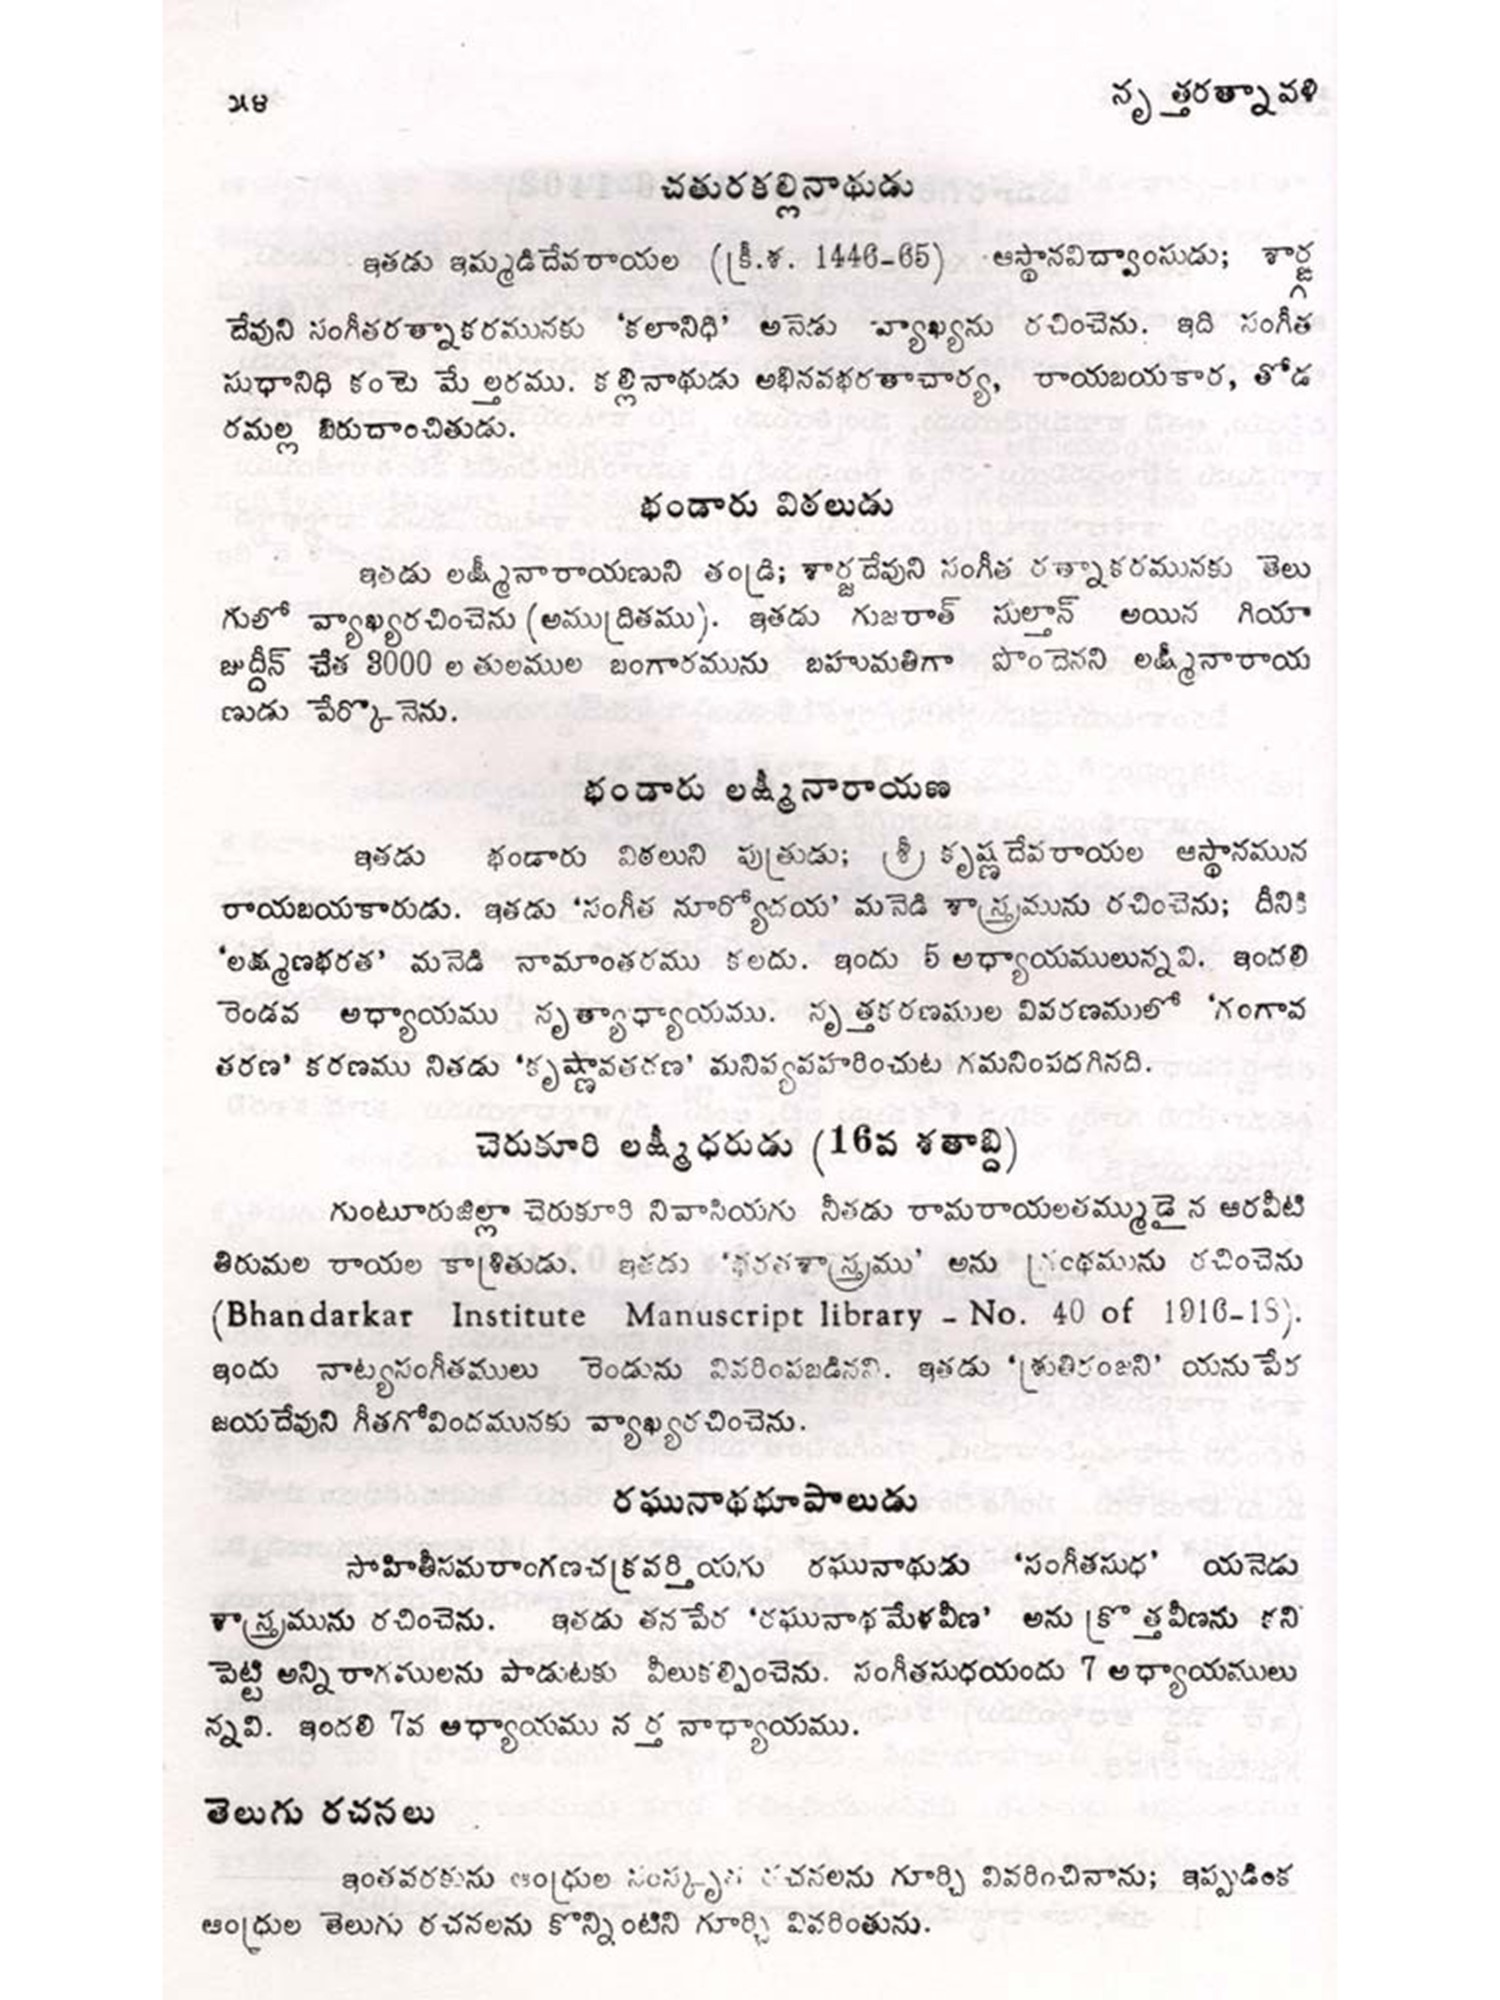 ౫౪
నృత్తరత్నావళి
చతురకల్లినాథుడు
ఇతడు ఇమ్మడిదేవరాయల (క్రీ.శ. 1446-65) ఆస్థానవిద్వాంసుడు; శార్ఙ్గ
దేవుని సంగీతరత్నాకరమునకు ‘కలానిధి’ అనెడు వ్యాఖ్యను రచించెను. ఇది సంగీత
సుధానిధి కంటె మేల్తరము. కల్లినాథుడు అభినవభరతాచార్య, రాయబయకార, తోడ
రమల్ల బిరుదాంచితుడు.
భండారు విఠలుడు
ఇతడు లక్ష్మీనారాయణుని తండ్రి; శార్ఙ్గదేవుని సంగీత రత్నాకరమునకు తెలు
గులో వ్యాఖ్యరచించెను (అముద్రితము). ఇతడు గుజరాత్ సుల్తాన్ అయిన గియా
జుద్దీన్ చేత 3000 ల తులముల బంగారమును బహుమతిగా పొందెనని లక్ష్మీనారాయ
ణుడు పేర్కొనెను.
భండారు లక్ష్మీనారాయణ
ఇతడు భండారు విఠలుని పుత్రుడు; శ్రీ కృష్ణదేవరాయల ఆస్థానమున
రాయబయకారుడు. ఇతడు ‘సంగీత సూర్యోదయ’ మనెడి శాస్త్రమును రచించెను; దీనికి
‘లక్ష్మణభరత’ మనెడి నామాంతరము కలదు. ఇందు 5 అధ్యాయములున్నవి. ఇందలి
రెండవ అధ్యాయము నృత్యాధ్యాయము. నృత్తకరణముల వివరణములో ‘గంగావ
తరణ’ కరణము నితడు ‘కృష్ణావతరణ’ మనివ్యవహరించుట గమనింపదగినది.
చెరుకూరి లక్ష్మీధరుడు (16వ శతాబ్ది)
గుంటూరుజిల్లా చెరుకూరి నివాసియగు నీతడు రామరాయలతమ్ముడైన ఆరవీటి
తిరుమల రాయల కాశ్రితుడు. ఇతడు ‘భరతశాస్త్రము’ అను గ్రంథమును రచించెను
(Bhandarkar Institute Manuscript library - No. 40 of 1916-18).
ఇందు నాట్యసంగీతములు రెండును వివరింపబడినవి. ఇతడు ‘శ్రుతిరంజని’ యనుపేర
జయదేవుని గీతగోవిందమునకు వ్యాఖ్యరచించెను.
రఘునాథభూపాలుడు
సాహితీసమరాంగణచక్రవర్తియగు రఘునాథుడు ‘సంగీతసుధ’ యనెడు
శాస్త్రమును రచించెను. ఇతడు తనపేర ‘రఘునాథమేళవీణ’ అను క్రొత్తవీణను కని
పెట్టి అన్నిరాగములను పాడుటకు వీలుకల్పించెను. సంగీతసుధయందు 7 అధ్యాయములు
న్నవి. ఇందలి 7వ అధ్యాయము నర్తనాధ్యాయము.
తెలుగు రచనలు
ఇంతవరకును ఆంధ్రుల సంస్కృత రచనలను గూర్చి వివరించినాను; ఇప్పుడింక
ఆంధ్రుల తెలుగు రచనలను కొన్నింటిని గూర్చి వివరింతును.